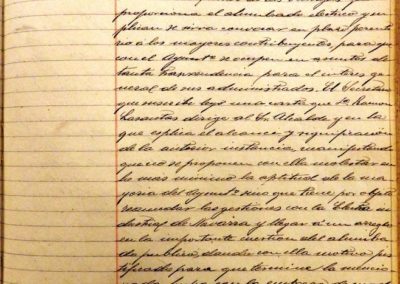 proporciona el alumbrado eléctrico y su-
plican se sirva convocar en plazo perento-
rio á los mayores contribuyentes, para que
con el Ayunt.º se ocupen en asuntos de
tanta trascendencia para el interés ge-
neral de sus administrados. El Secretario
que suscribe leyó una carta que D. Ramon
dirige al Sr. Alcalde y en la
que esplica el alcance y significación
de la anterior instancia, manifestando
que no se proponen con ella molestar en
lo más mínimo la aptitud de la ma-
yoria del Ayunt.º sino que tiene por objeto
reanudar las gestiones con la Electra in-
dustrial de Navarra y llegar á un arreglo
en la importante cuestion del alumbra-
do publico, dando con ella motivo jus-
tificado para que termine la